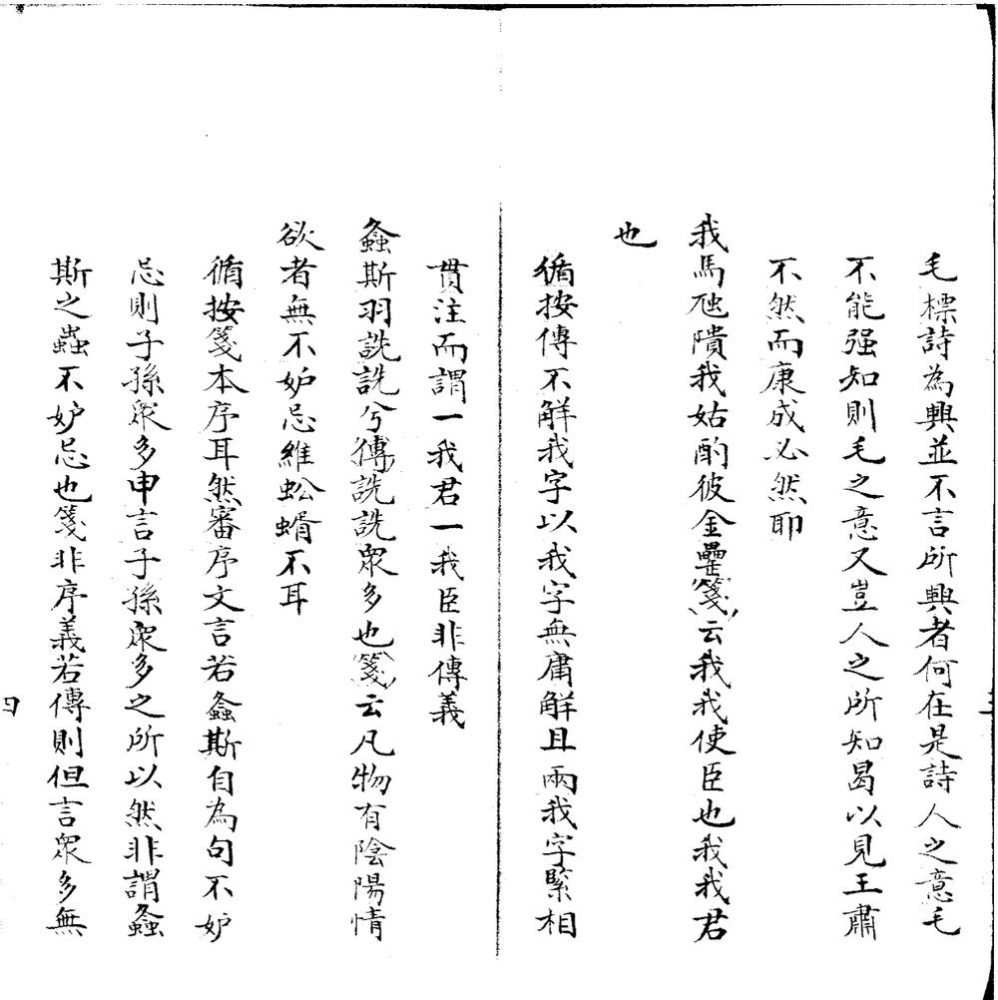 毛標詩為興並不言所興者何在是詩人之意毛
不能强知則毛之意又豈人之所知曷以見王肅
不然而康成必然耶
我馬虺隤我姑酌彼金罍箋云我我使臣也我我君
也
循按傳不解我字以我字無庸解且兩我字緊相
貫注而謂一我君一我臣非傳義
螽斯羽詵詵兮傳詵詵衆多也箋云凡物有陰陽情
欲者無不妒忌維蚣蝑不耳
循按箋本序耳然審序文言若螽斯自為句不妒
忌則子孫衆多申言子孫衆多之所以然非謂螽
斯之蟲不妒忌也箋非序義若傳則但言衆多無
四